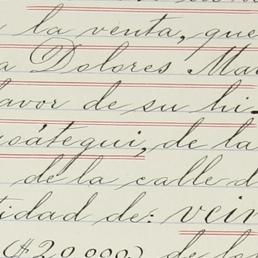 la venta, que
a Dolores Mar
favor de su hi-
oátegui, de la
de la calle d
tidad de: vein
($20.000) de la